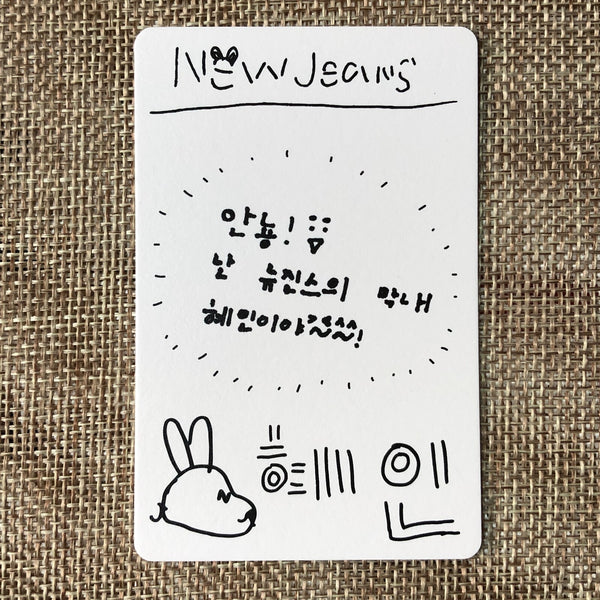 NEW Jeans
안뇽!
난 뉴진스의 막내
혜인이야~~!
혜인